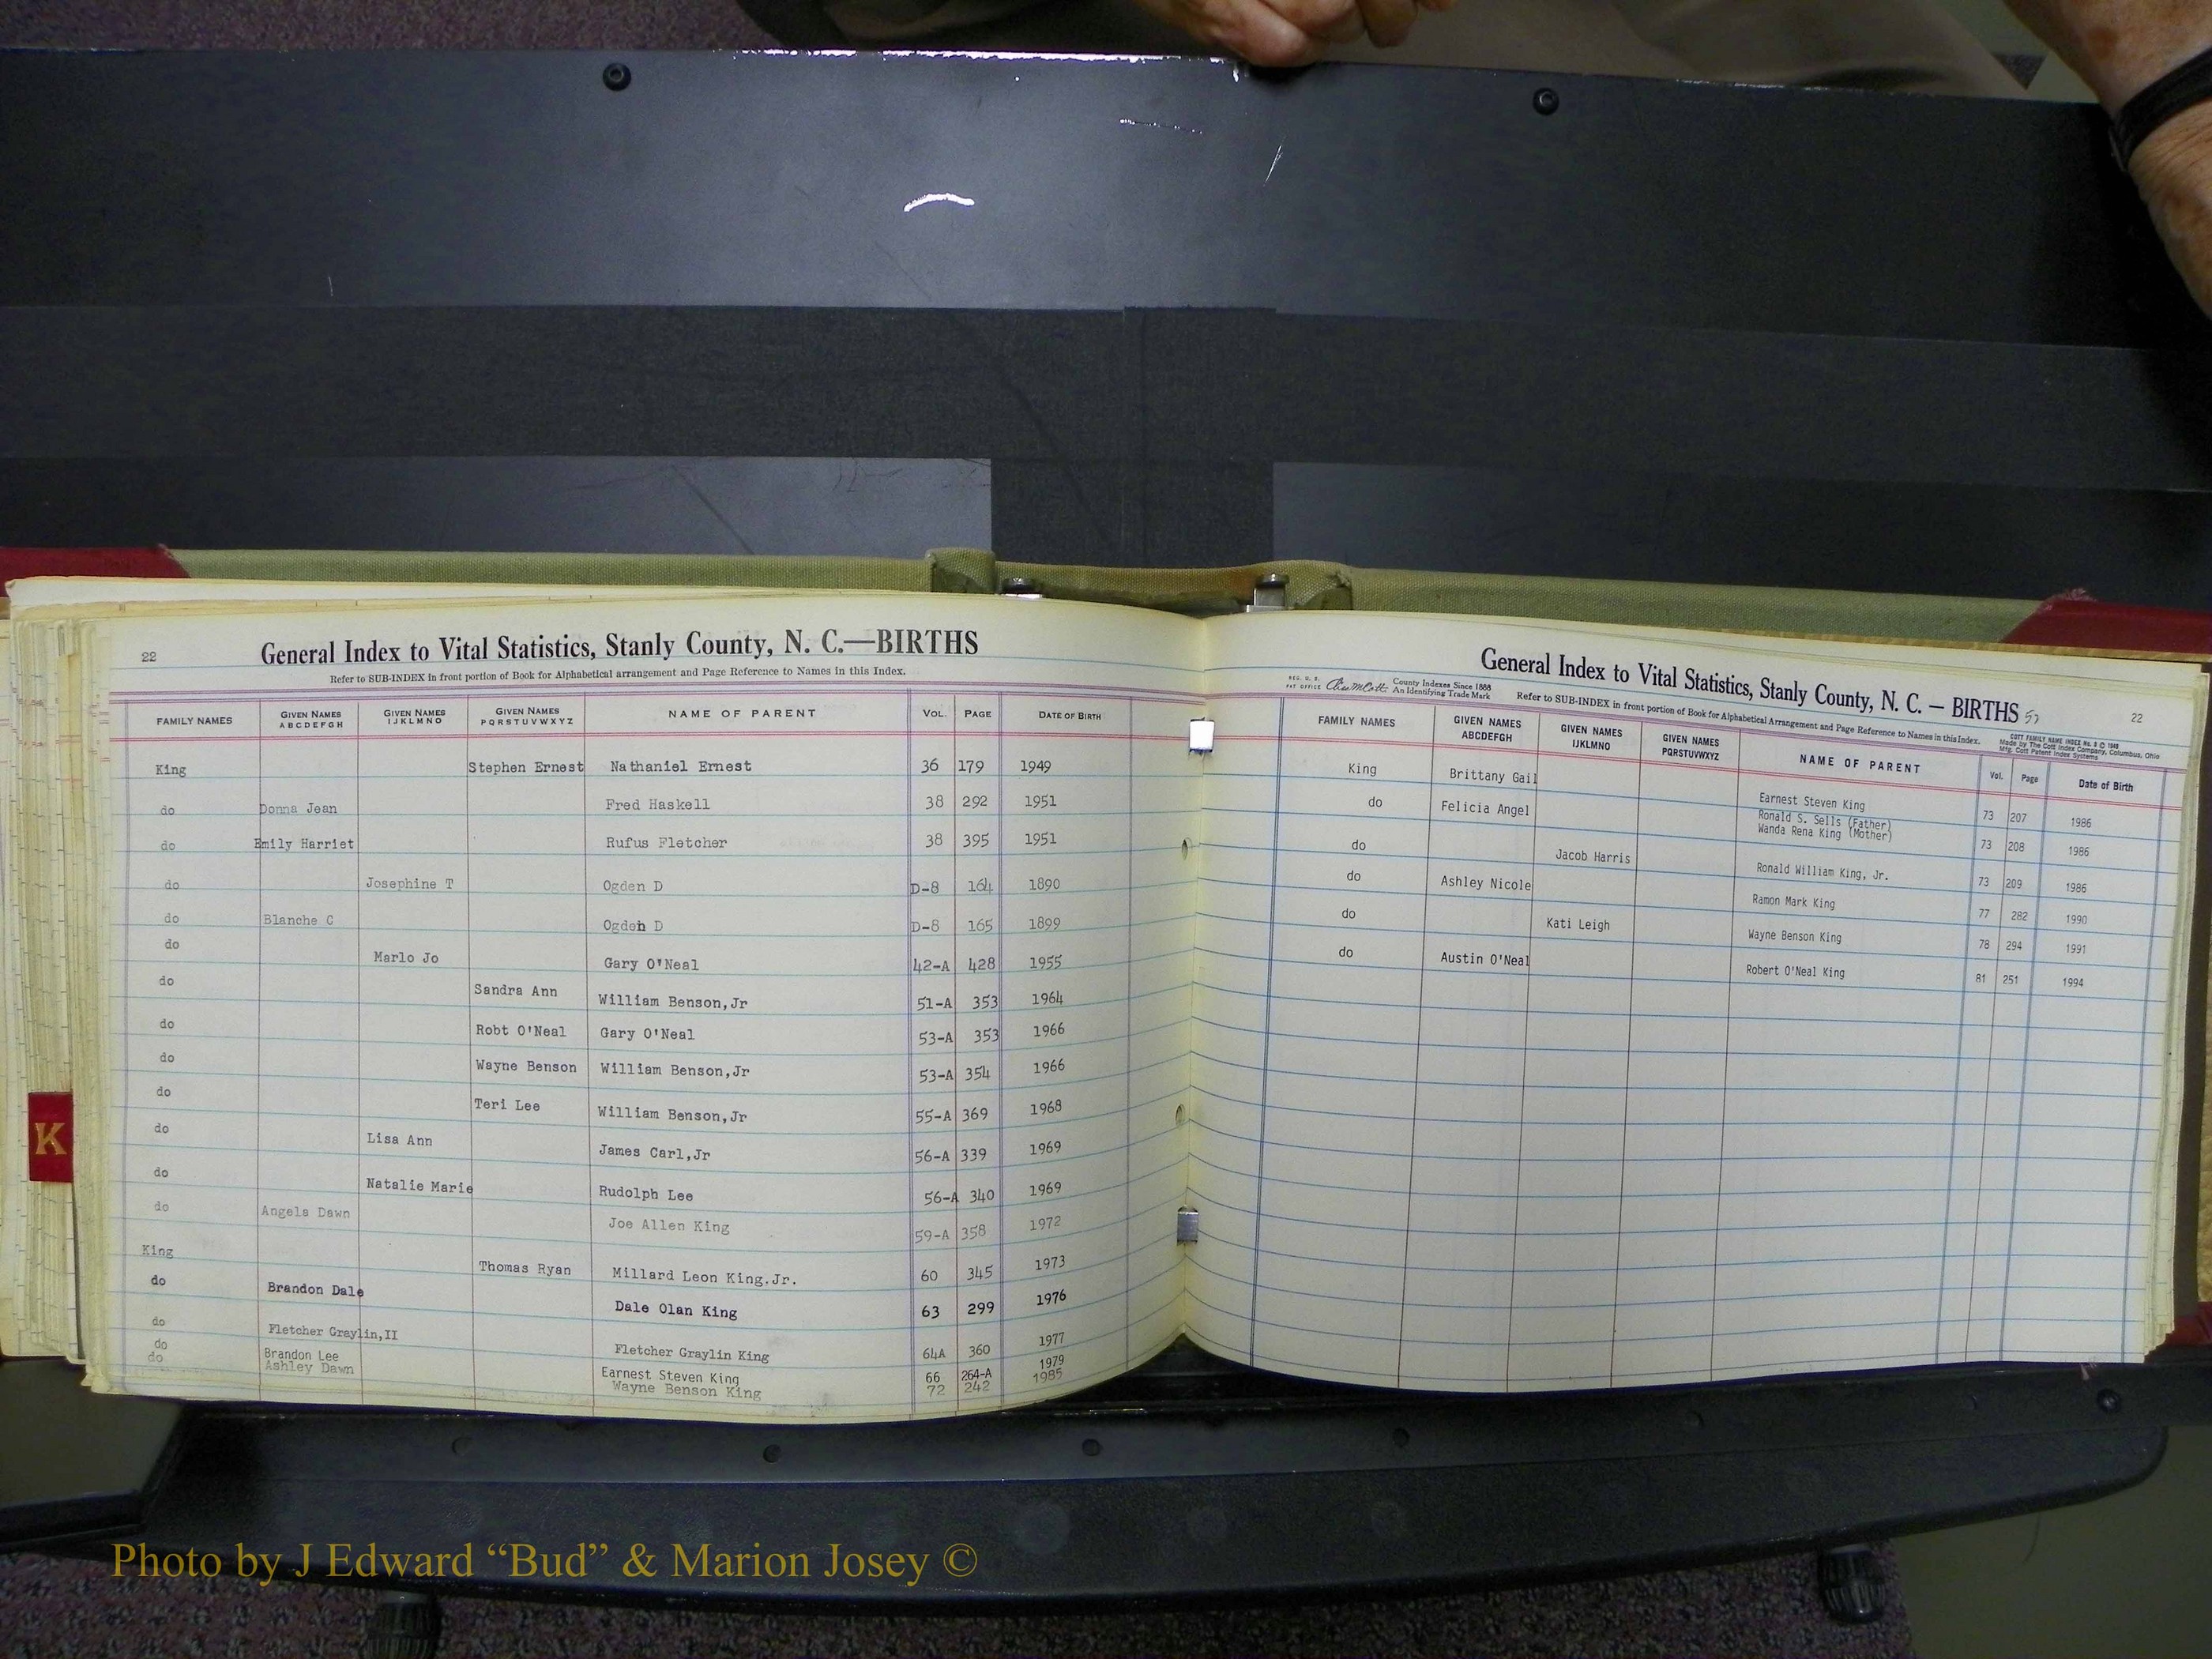 22
General Index to Vital Statistics, Stanly County, N. C.—BIRTHS
Refer to SUB-INDEX in front portion of Book for Alphabetical arrangement and Page Reference to Names in this Index.
FAMILY NAMES GIVEN NAMES ABCDEFGH GIVEN NAMES IJKLMNO GIVEN NAMES PQRSTUVWXYZ NAME OF PARENT VOL. PAGE DATE OF BIRTH
King Stephen Ernest Nathaniel Ernest 36 179 1949
do Donna Jean Fred Haskell 38 292 1951
do Emily Harriet Rufus Fletcher 38 395 1951
do Josephine T Ogden D D-8 164 1890
do Blanche C Ogden D D-8 165 1899
do Marlo Jo Gary O'Neal 42-A 428 1955
do Sandra Ann William Benson,Jr 51-A 353 1964
do Robt O'Neal Gary O'Neal 53-A 353 1966
do Wayne Benson William Benson,Jr 53-A 354 1966
do Teri Lee William Benson,Jr 55-A 369 1968
do Lisa Ann James Carl,Jr 56-A 339 1969
do Natalie Marie Rudolph Lee 56-A 340 1969
do Angela Dawn Joe Allen King 59-A 358 1972
King Thomas Ryan Millard Leon King.Jr. 60 345 1973
do Brandon Dale Dale Olan King 63 299 1976
do Fletcher Graylin,II Fletcher Graylin King 64A 360 1977
do Brandon Lee Earnest Steven King 66 264-A 1979
do Ashley Dawn Wayne Benson King 72 242 1985
K
General Index to Vital Statistics, Stanly County, N. C. — BIRTHS
22
REG. U. S. PAT OFFICE County Indexes Since 1888
An Identifying Trade Mark
Refer to SUB-INDEX in front portion of Book for Alphabetical Arrangement and Page Reference to Names in this Index.
COTT FAMILY NAME INDEX No. 5 © 1949
Made by The Cott Index Company, Columbus, Ohio
Mfg. Cott Patent Index Systems
FAMILY NAMES GIVEN NAMES ABCDEFGH GIVEN NAMES IJKLMNO GIVEN NAMES PQRSTUVWXYZ NAME OF PARENT Vol. Page Date of Birth
King Brittany Gail Earnest Steven King 73 207 1986
do Felicia Angel Ronald S. Sells (Father)
Wanda Rena King (Mother) 73 208 1986
do Jacob Harris Ronald William King, Jr. 73 209 1986
do Ashley Nicole Ramon Mark King 77 282 1990
do Kati Leigh Wayne Benson King 78 294 1991
do Austin O'Neal Robert O'Neal King 81 251 1994
Photo by J Edward “Bud” & Marion Josey ©